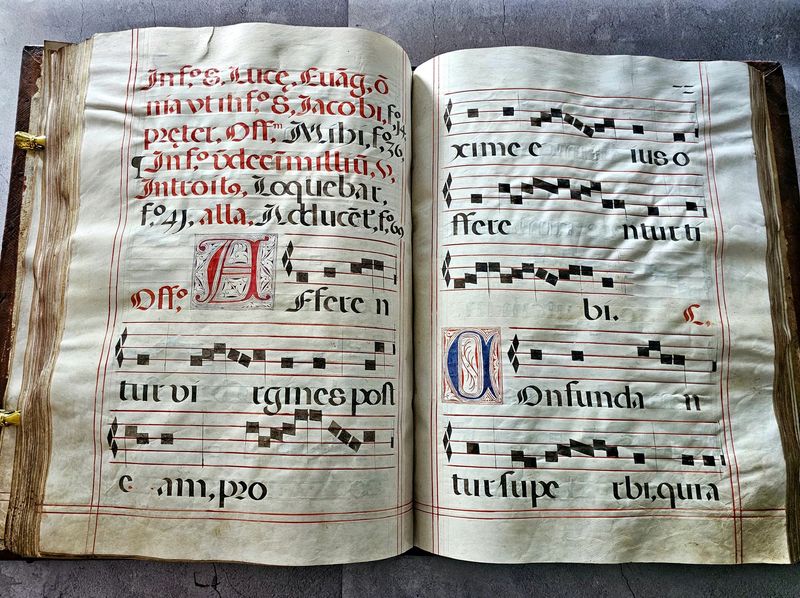 In f.º S, Lucę, Euãg, õ
nia vt in f.º S, Iacobi, f.º 14,
prętet, Off.m Mihi, f.º 36,
¶ In f.º vdecim
Introito, Loquebar,
f.º 41, alla, Adducet, f.º 60
Off.º A Ffere n
tur vi rgines post
e am, pro
xime e ius o
ffere ntur ti
bi. C.
C Onfunda n
tur supe rbi, quia